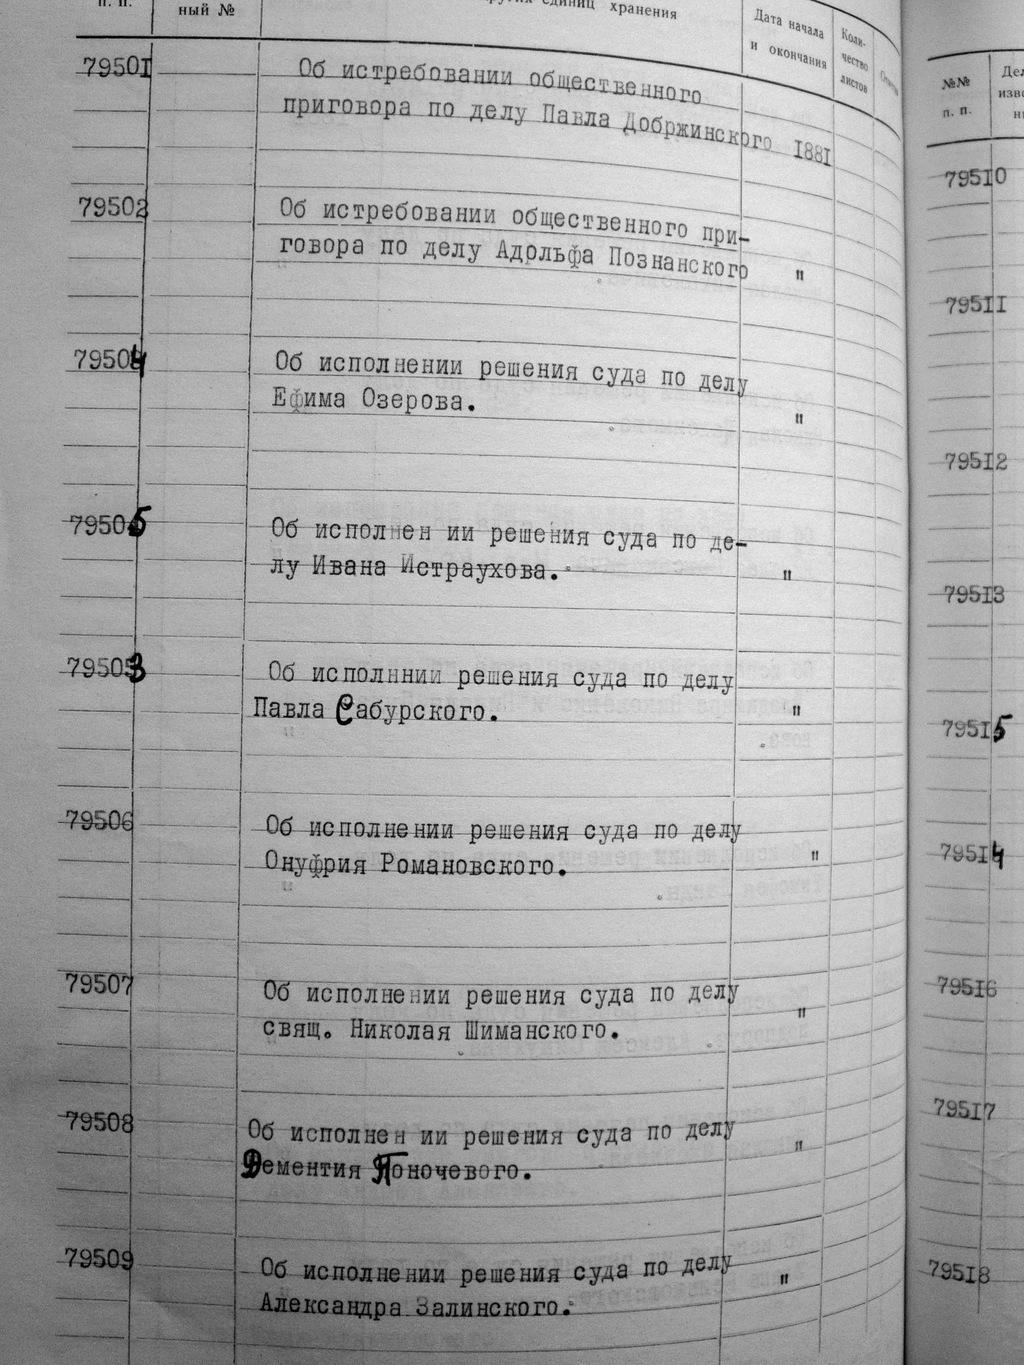 п. п.
ный №
других единиц хранения
Дата начала
и окончания
Коли-
чество
листов
79501
Об истребовании общественного
приговора по делу Павла Добржинского 1881
79502
Об истребовании общественного при-
говора по делу Адольфа Познанского "
79504
Об исполнении решения суда по делу
Ефима Озерова. "
79505
Об исполнен ии решения суда по де-
лу Ивана Истраухова. "
79503
Об исполннии решения суда по делу
Павла Сабурского. "
79506
Об исполнении решения суда по делу
Онуфрия Романовского. "
79507
Об исполнении решения суда по делу
свящ. Николая Шиманского. "
79508
Об исполнен ии решения суда по делу
Дементия Поночевого. "
79509
Об исполнении решения суда по делу
Александра Залинского. "
№№
п. п.
79510
79511
79512
79513
79515
79514
79516
79517
79518